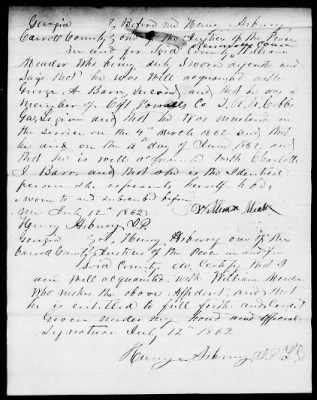 Georgia } Before me Henry Asbury
Carroll County } one of the Justice of the Peace
in and for Said County personally came William
Meador Who being duly Sworn deposeth and
Says that he was Well acquainted with
George A Barr, Second, and that he was a
Member of Capt Powells Co T. R. R. Cobb
Ga, Legion and that he Was mustered in
the Service on the 4th March 1862 and that
he died on the day of June 1862, and
that he is well acquainted with Charlotte
J Barr and that she is the Identical
person she represents herself to be,
Sworn to and subscribed before
me July 12th 1862 } William Meador
Henry Asbury J.P.
Georgia } I, Henry Asbury one of the
Carroll County } Justices of the Peace in and for
Said County do, Certify that I
am Well acquainted with William Meador
Who makes the above Affidavit and that
he is entitled to full faith and credit
Given under my hand and official
Signature July 12th 1862
Henry Asbury J.P.